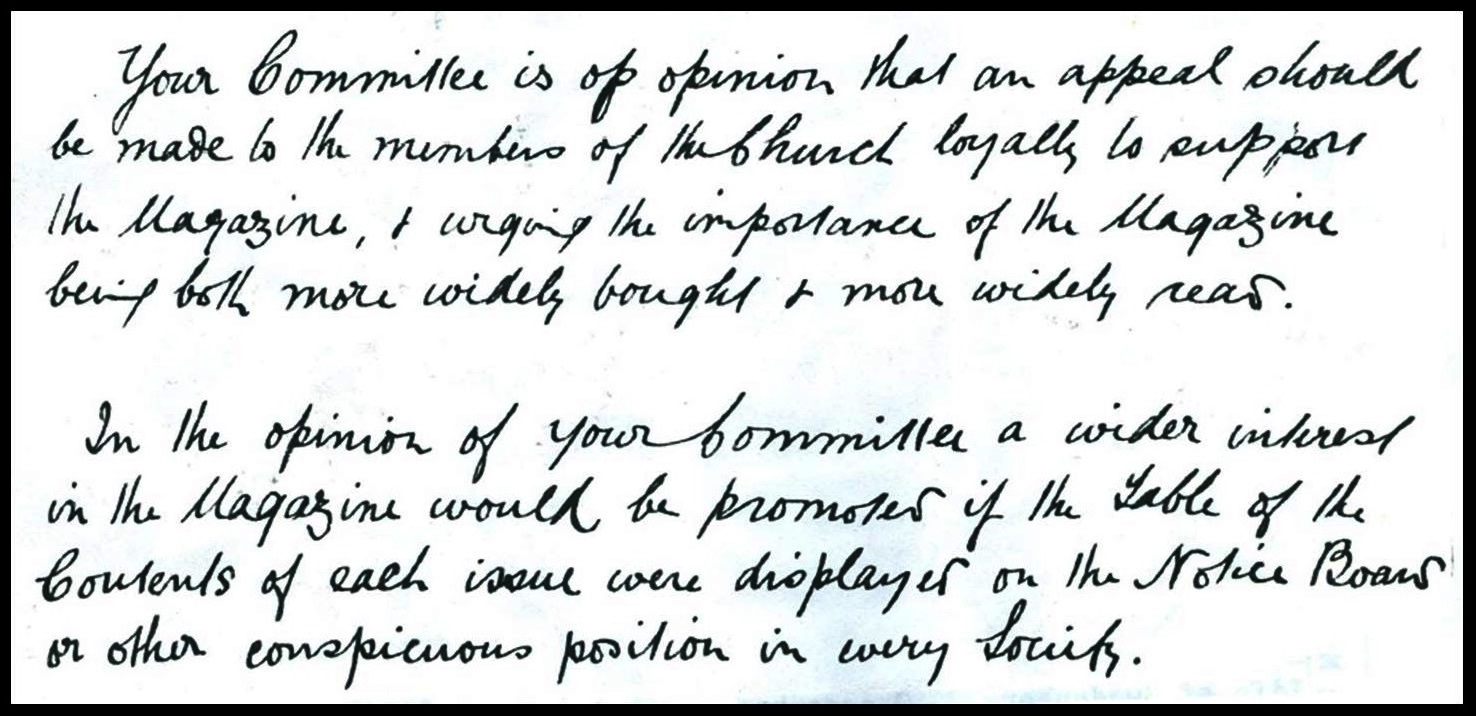 Your Committee is of opinion that an appeal should
be made to the members of the Church loyally to support
the Magazine, & urging the importance of the Magazine
being both more widely bought & more widely read.
In the opinion of your Committee a wider interest
in the Magazine would be promoted if the Table of the
Contents of each issue were displayed on the Notice Board
or other conspicuous position in every Society.